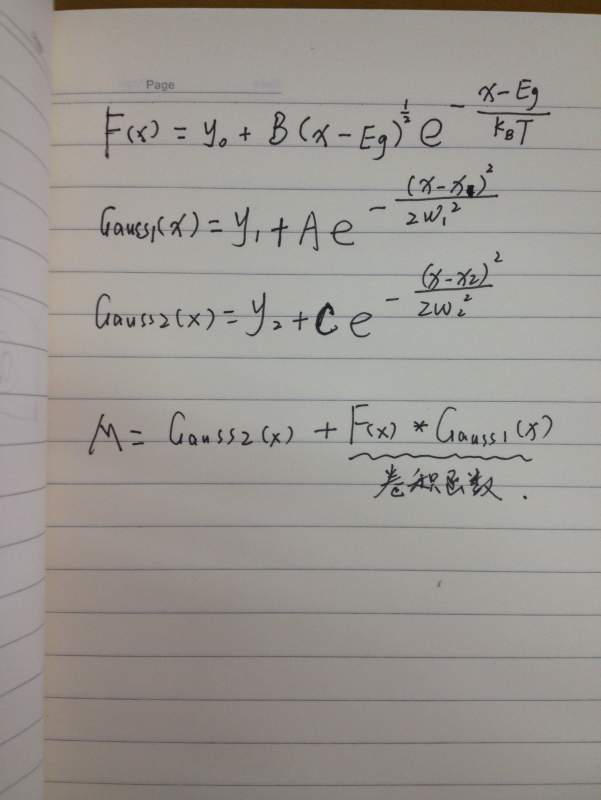 Page
F(x) = y₀ + B (x - Eg)^{1/2} e^{- \frac{x - Eg}{k_B T}}
Gauss1(x) = y₁ + A e^{- \frac{(x - x)^2}{2w_1^2}}
Gauss2(x) = y₂ + C e^{- \frac{(x - x_2)^2}{2w_2^2}}
M = Gauss2(x) + F(x) * Gauss1(x)
卷积函数.